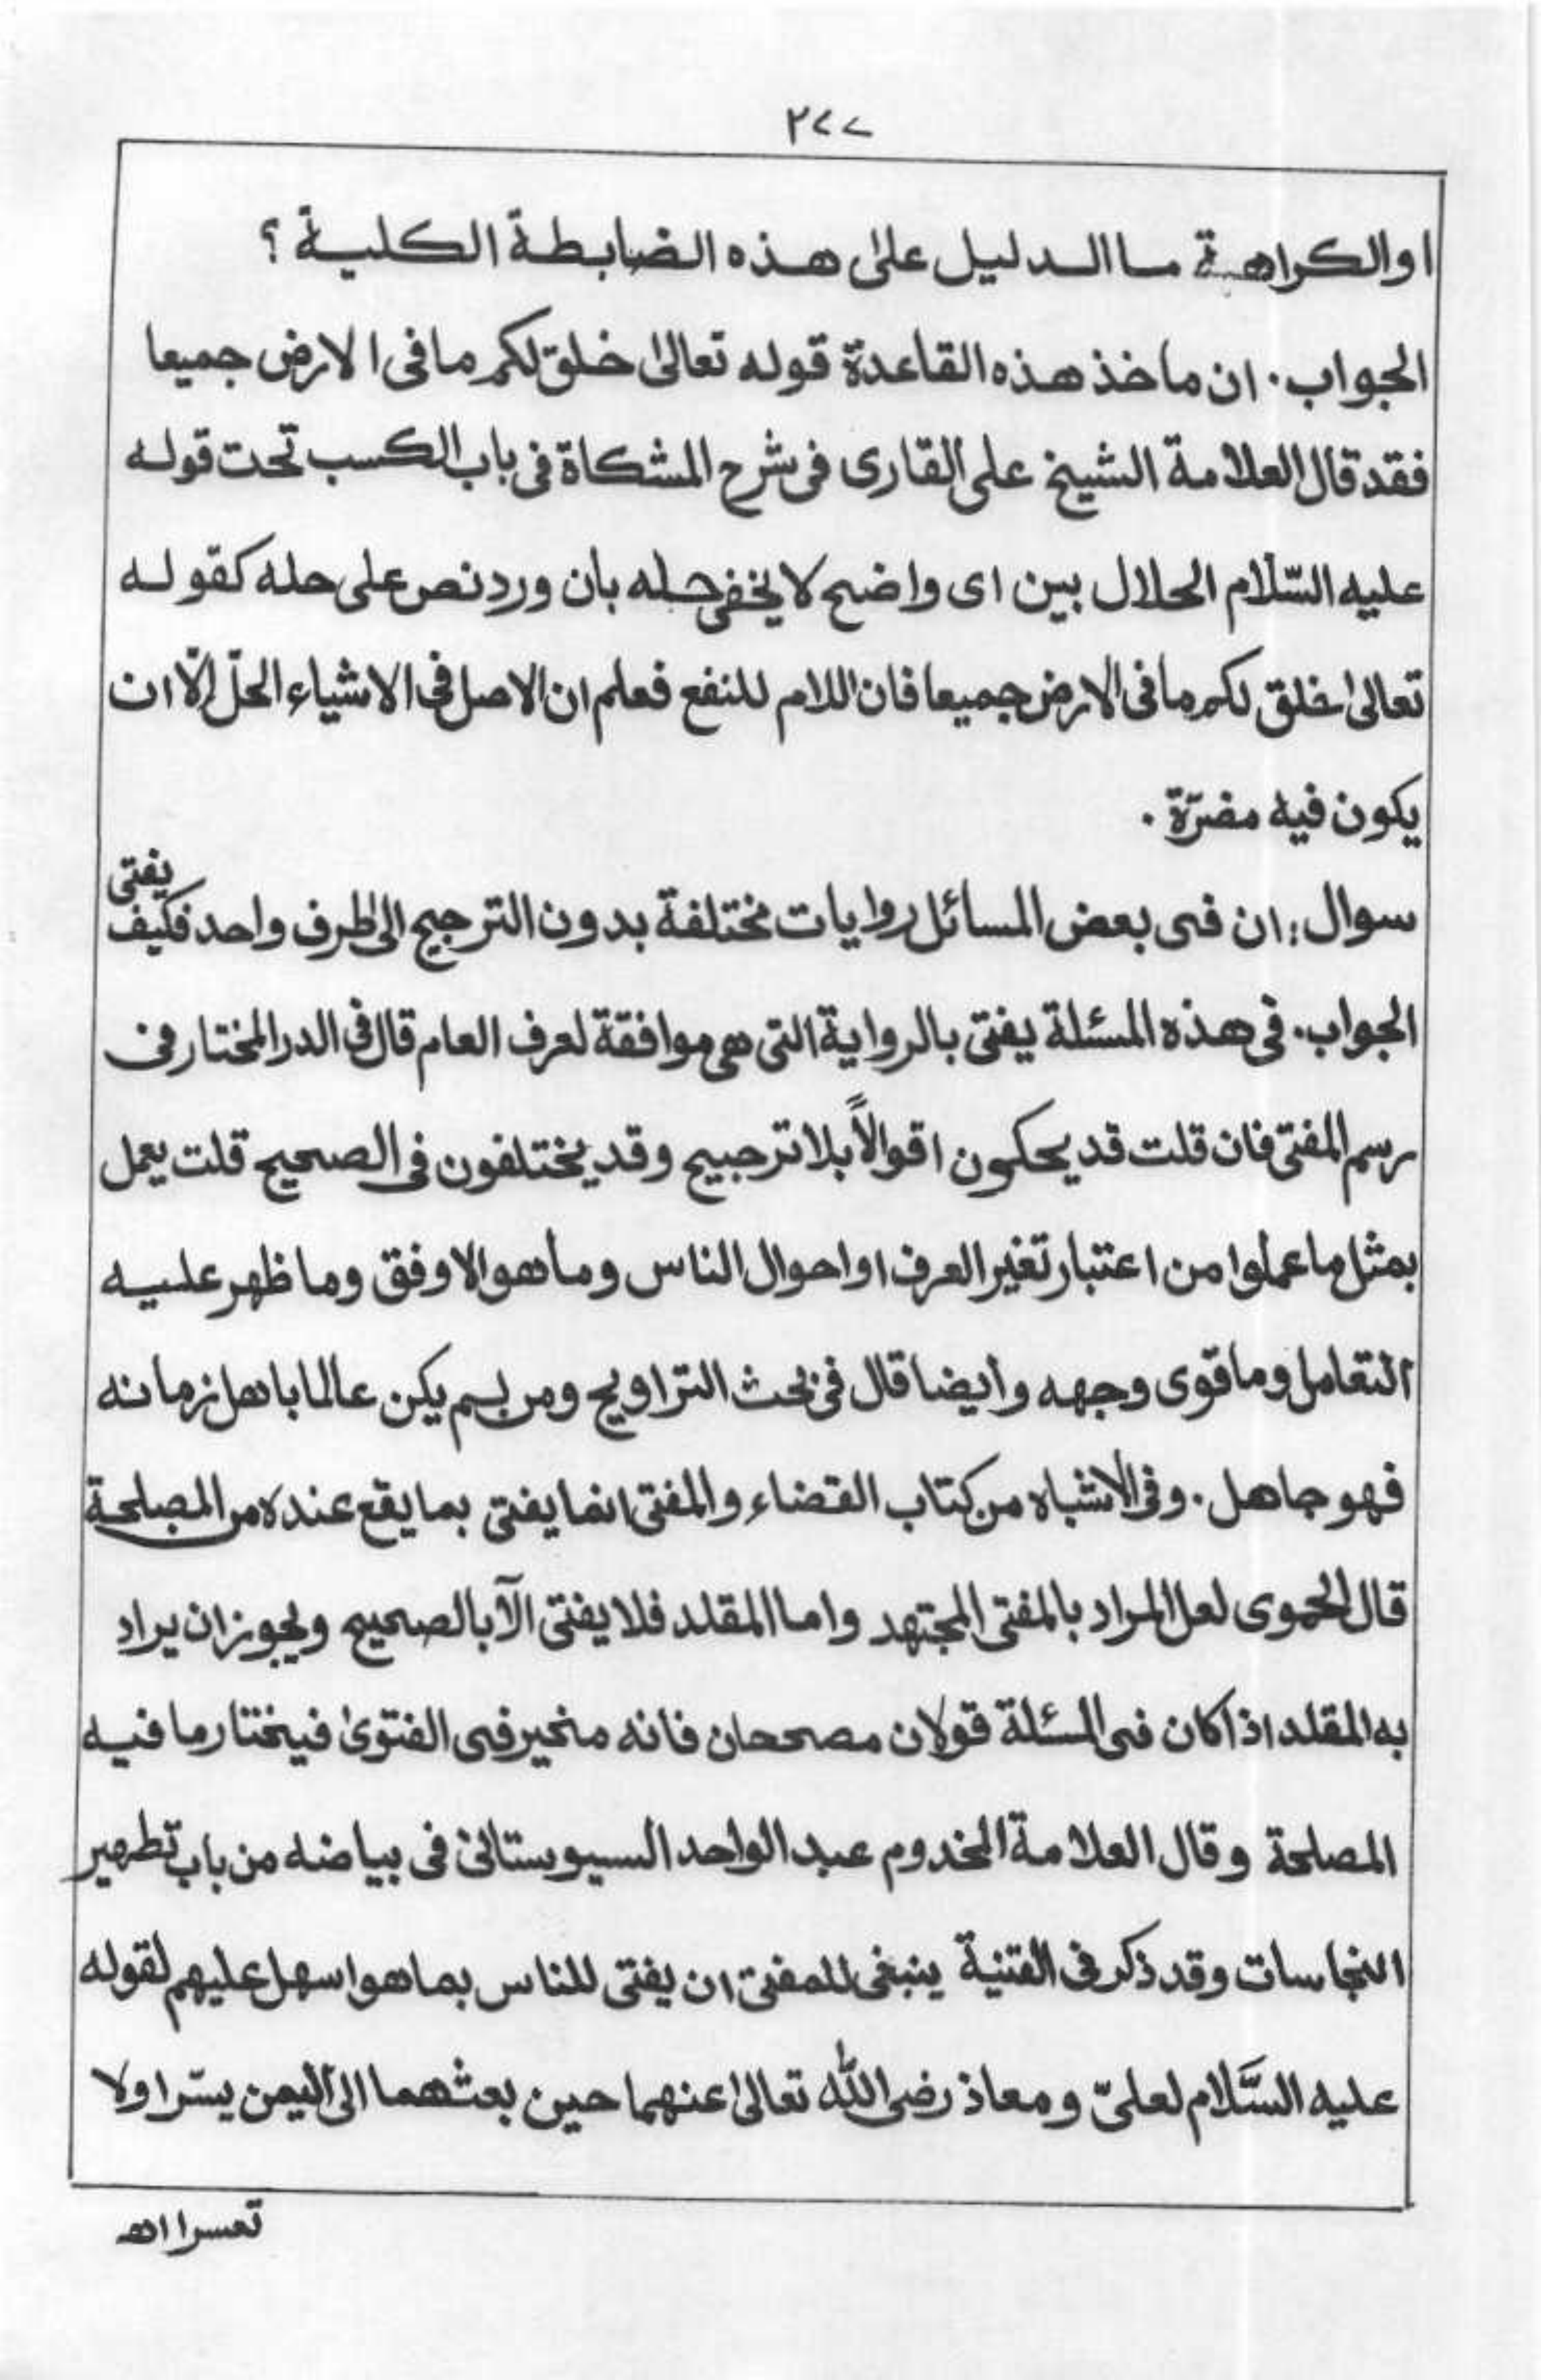 ٢٧٧
او الكراهة ما الدليل على هذه الضابطة الكلية ؟
الجواب . ان ماخذ هذه القاعدة قوله تعالىٰ خلق لكم ما فى الارض جميعا
فقد قال العلامة الشيخ على القارى فى شرح المشكاة فى باب الكسب تحت قوله
عليه السّلام الحلال بين اى واضح لا يخفى حله بأن ورد نص على حله كقوله
تعالىٰ خلق لكم ما فى الارض جميعا فان اللام للنفع فعلم ان الاصل فى الاشياء الحلّ الّا ان
يكون فيه مضرّة .
سوال : ان فى بعض المسائل روايات مختلفة بدون الترجيح الى طرف واحد فكيف يفتى
الجواب . فى هذه المسئلة يفتى بالرواية التى هى موافقة لعرف العام قال فى الدر المختار فى
رسم المفتى فان قلت قد يحكون اقوالاً بلا ترجيح وقد يختلفون فى الصحيح قلت يعمل
بمثل ما عملوا من اعتبار تغير العرف او احوال الناس وما هو الاوفق وما ظهر عليه
التعامل وما قوى وجهه وأيضا قال فى بحث التراويح ومن لم يكن عالما باهل زمانه
فهو جاهل . وفى الاشباه من كتاب القضاء والمفتى انما يفتى بما يقع عنده من المصلحة
قال الحموى لعل المراد بالمفتى المجتهد واما المقلد فلا يفتى الآ بالصحيح ويجوز ان يراد
به المقلد اذا كان فى المسئلة قولان مصححان فانه مخير فى الفتوىٰ فيختار ما فيه
المصلحة وقال العلامة المخدوم عبد الواحد السيوستانى فى بياضه من باب تطهير
النجاسات وقد ذكر فى القنية ينبغى للمفتى ان يفتى للناس بما هو اسهل عليهم لقوله
عليه السَّلام لعلىّ ومعاذ رضى الله تعالىٰ عنهما حين بعثهما الى اليمن يسّرا ولا
تعسرا اھ